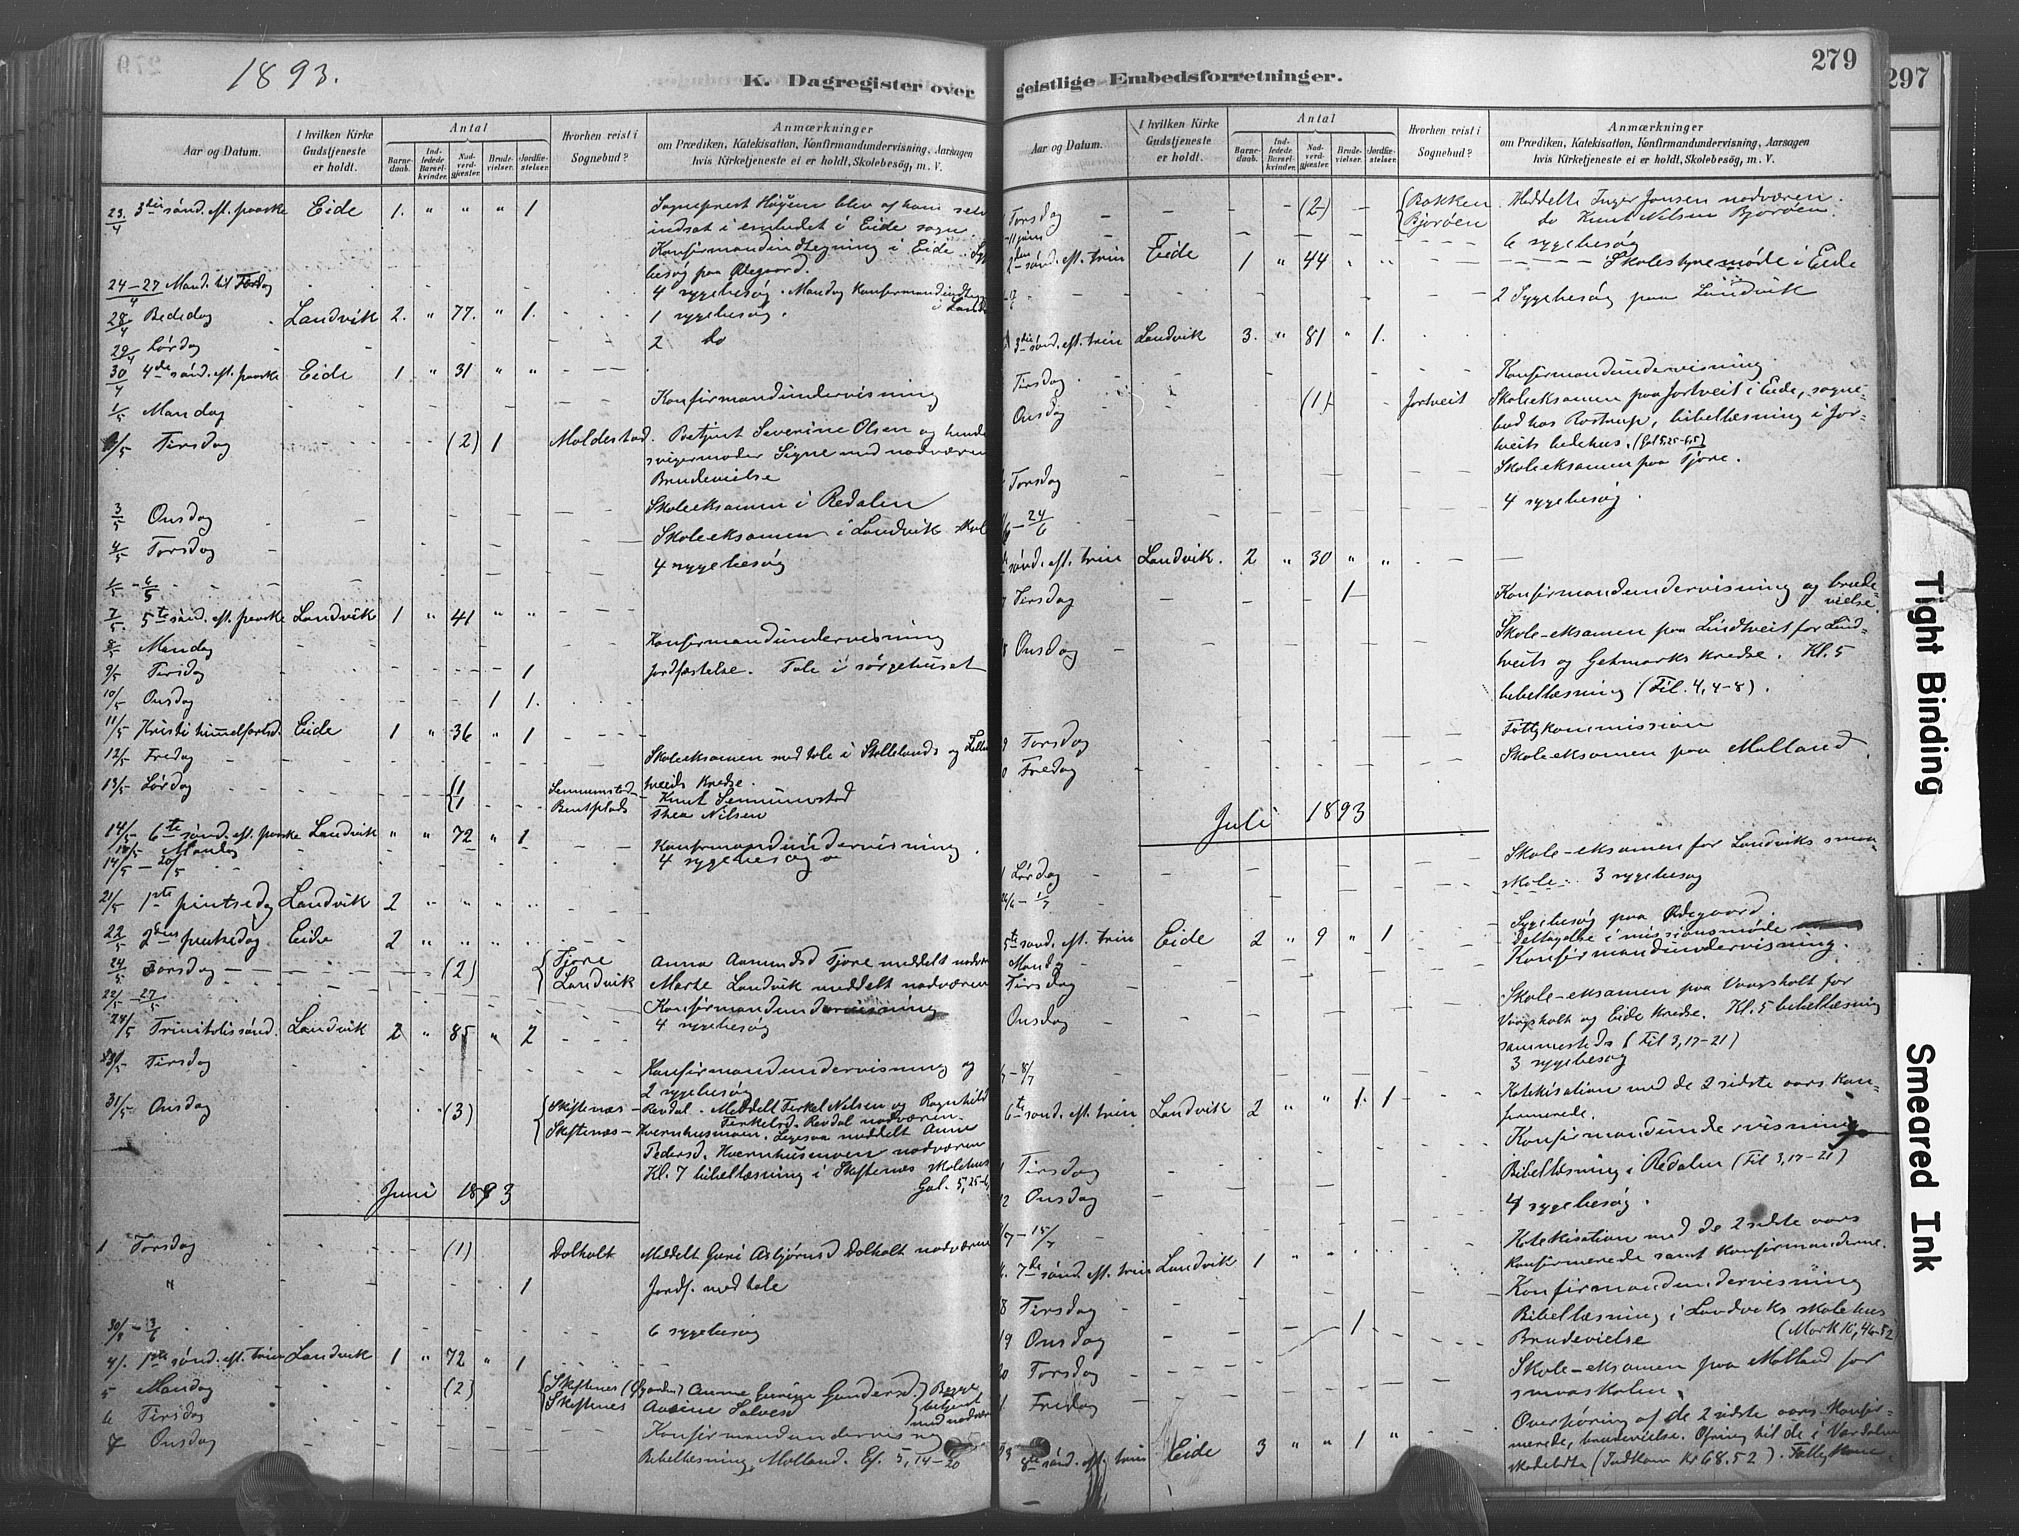 1893.
K. Dagregister over
Aar og Datum.
I hvilken Kirke Gudstjeneste er holdt.
Antal
Barnedaab.
Indledede Barselkvinder.
Nadverdgjæster.
Brudevielser.
Jordfæstelser.
Hvorhen reist i Sognebud?
Anmærkninger
om Prædiken, Katekisation, Konfirmandundervisning, Aarsagen
hvis Kirketjeneste ei er holdt, Skolebesøg, m. V.
23/4 3die sønd. eft. paaske Eide 1. " " " 1 Sogneprest Høyem blev af ham selv
indsat i embedet i Eide sogn.
Konfirmandindtegning i Eide.
besøg paa Ødegaard.
24-27/4 Mand. til Torsdag 4 sygebesøg. Mandag Konfirmandindtegn
28/4 Bededag Landvik 2. " 77. " 1. 1 sygebesøg.
29/4 Lørdag 2 do
30/4 4de sønd. eft. paaske Eide 1 " 31 " "
1/5 Mandag Konfirmandundervisning
2/5 Tirsdag (2) 1 Moldestad. Betjent Severine Olsen og hendes
svigermoder Signe med nadværen
Brudevielse
3/5 Onsdag Skoleeksamen i Redalen
4/5 Torsdag Skoleeksamen i Landvik
1/5 - 6/5 4 sygebesøg
7/5. 5te sønd. eft. paaske Landvik 1 " 41 " "
8/5 Mandag Konfirmandundervisning
9/5 Tirsdag 1 Jordfæstelse. Tale i sørgehuset
10/5 Onsdag 1 1.
11/5 Kristi himmelfartsd. Eide 1 " 36 " 1
12/5 Fredag Skoleeksamen med tale i
13/5 Lørdag Kredse.
Knut
Thea Nilsen
14/5 6te sønd. eft. paaske Landvik " " 72 " 1
Mandag Konfirmandundervisning.
14/5 - 20/5 4 sygebesøg
21/5 1ste pintsedag Landvik 2 " " " "
22/5 2den pintsedag Eide 2 " " " "
24/5 Torsdag (2) {Tjore Anna Aamundsd Tjore meddelt nadværen
Landvik Marte Landvik meddelt nadværen
22/5 - 27/5 Konfirmandundervisning
4 sygebesøg
28/5 Trinitatissønd. Landvik 2 " 85 " 2
30/5 Tirsdag Konfirmandundervisning og
2 sygebesøg
31/5 Onsdag (3) {Skiftenæs- Revdal. Meddelt Terkel Nilsen og Ragnhild
Terkelsd. Revdal nadværen.
Skiftenæs- Kvernhusmoen. meddelt Anne
Pedersd. Kvernhusmoen nadværen
Kl. 7 bibellæsning i Skiftenæs skolehus
Gal. 5, 25-6,
Juni 1893
1 Torsdag (1) Dolholt Meddelt Guri Asbjørnsd Dolholt nadværen
" 1 Jordf. med tale
30/5 - 3/6 6 sygebesøg
4/. 1ste sønd. eft. trin Landvik 1 " 72 " 1
5 Mandag (2) {Skiftenes Gundersd. } Begge
6 Tirsdag Skiftenes betjent
med nadvær
7 Onsdag Konfirmandundervisning
Bibellæsning, Molland. Ef. 5, 14-20
279
297
geistlige Embedsforretninger.
Aar og Datum.
I hvilken Kirke Gudstjeneste er holdt.
Antal
Barnedaab.
Indledede Barselkvinder.
Nadverdgjæster.
Brudevielser.
Jordfæstelser.
Hvorhen reist i Sognebud?
Anmærkninger
om Prædiken, Katekisation, Konfirmandundervisning, Aarsagen
hvis Kirketjeneste ei er holdt, Skolebesøg, m. V.
Torsdag (2) {Bakken Meddelte Inger Jensen nadværen.
Bjorøen do Knut Nilsen Bjorøen.
6 sygebesøg
2den sønd. eft. trin Eide 1 " 44 " " Skolestyremøde i Eide
2 Sygebesøg paa Landvik
3die sønd. eft. trin Landvik 3. " 81 " 1.
Tirsdag Konfirmandundervisning
Onsdag (1) Jortveit Skoleeksamen paa Jortveit i Eide, sogne-
bud hos Rostrup, bibellæsning i Jor-
tveits bedehus. (Gal 5,25-6,5)
Torsdag Skoleeksamen paa Tjore.
- 24/6 4 sygebesøg.
sønd. eft. trin Landvik. 2 " 30 " "
Tirsdag 1 Konfirmandundervisning og brude-
vielse.
Onsdag Skole-eksamen paa Lindtveit for Lind-
tveits og Getmarks Kredse. Kl. 5
bibellæsning (Fil. 4, 4-8).
Torsdag Fattigkommission
Fredag Skoleeksamen paa Molland
Juli 1893
1 Lørdag Skole-eksamen for Landviks smaa-
skole. 3 sygebesøg
- 1/7
Sygebesøg paa Ødegaard.
5te sønd. eft. trin Eide 2 " 9 " 1 Deltagelse i missionsmøde
Mandag Konfirmandundervisning.
Tirsdag
Onsdag Skole-eksamen paa Vaagsholt for
Vaagsholt og Eide Kredse. Kl. 5 bibellæsning
sammesteds (Fil 3, 17-21)
- 8/7 3 sygebesøg
6te sønd. eft. trin Landvik 2 " " 1. 1 Katekisation med de 2 sidste aars kon-
firmerede.
Tirsdag Konfirmandundervisning
Onsdag Bibellæsning i Redalen (Fil 3, 17-21)
- 15/7 4 sygebesøg.
7de sønd. eft. trin Landvik 1 Katekisation med de 2 sidste aars
konfirmerede samt konfirmanderne.
18 Tirsdag Konfirmandundervisning
19 Onsdag 1 Bibellæsning i Landviks skolehus
Brudevielse (Mark 10, 46-52
Torsdag Skole-eksamen paa Molland for
Fredag smaaskolen.
8de sønd. eft. trin Eide 3 " " 1 " Overhøring af de 2 sidste aars konfir-
merede, brudevielse. Ofring til de i Værdalen
skadelidte (Indkom kr 68.52).
Tight Binding
Smeared Ink